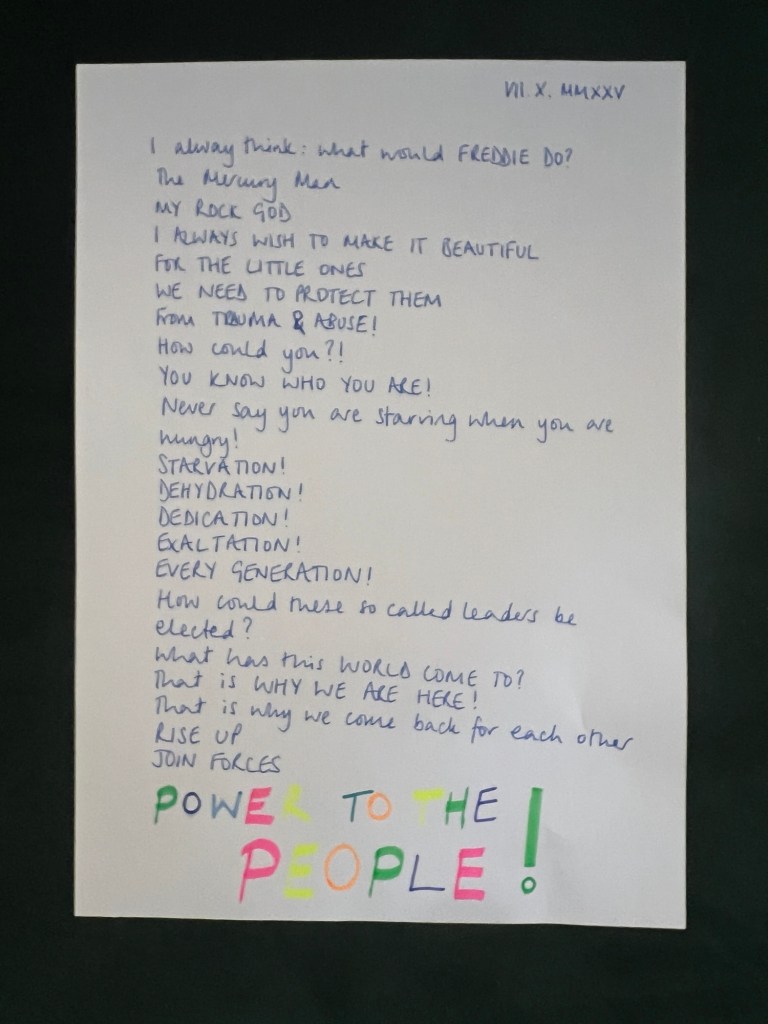 VII. X. MMXXV
I alway think: what would FREDDIE DO?
The Mercury Man
MY ROCK GOD
I ALWAYS WISH TO MAKE IT BEAUTIFUL
FOR THE LITTLE ONES
WE NEED TO PROTECT THEM
From TRAUMA & ABUSE!
How could you?!
YOU KNOW WHO YOU ARE!
Never say you are starving when you are
hungry!
STARVATION!
DEHYDRATION!
DEDICATION!
EXALTATION!
EVERY GENERATION!
How could these so called leaders be
elected?
What has this WORLD COME TO?
That is WHY WE ARE HERE!
That is why we come back for each other
RISE UP
JOIN FORCES
POWER TO THE
PEOPLE!